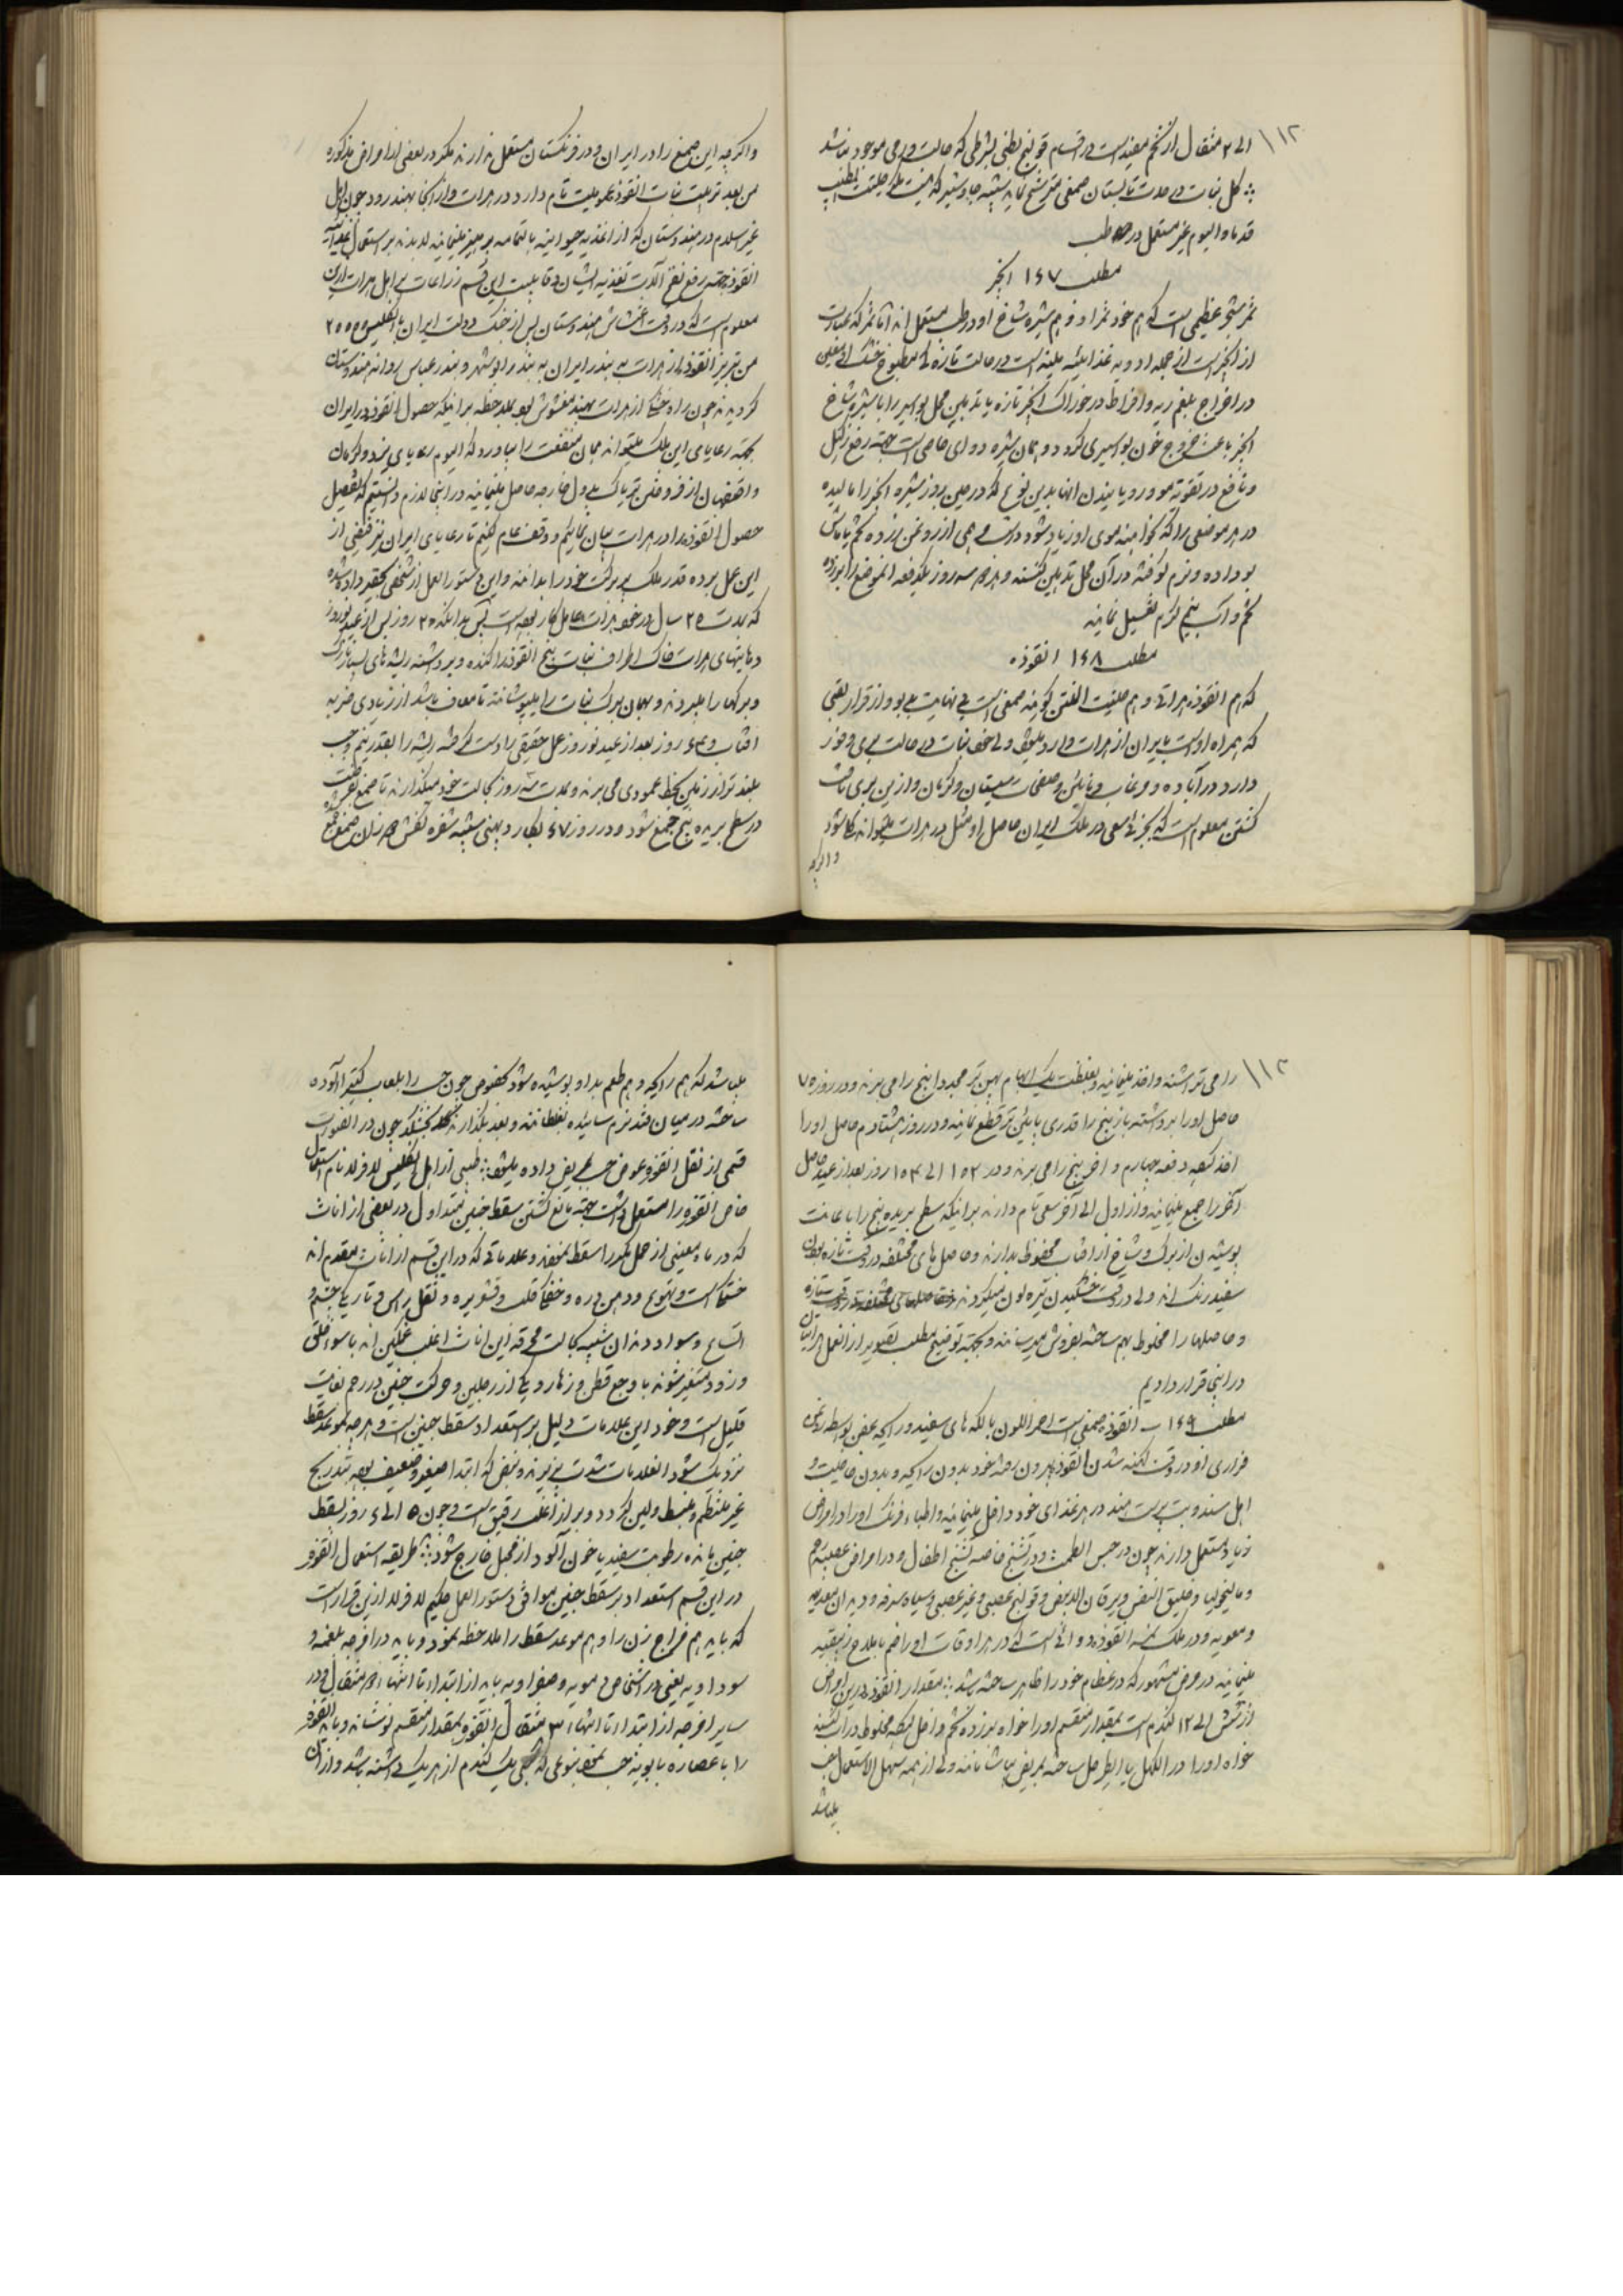 ۱۱۲
الی ۲ مثقال از تخم مفید است در اقسام قولنج بطنی بشرطی که حالت ورمی موجود نباشد
کل نبات در مدت تابستان صمغی مترشح نماید شبیه جاوشیر که
قدما و الیوم غیر مستعمل در طب
مطلب ۱۴۷ انجیر
ثمر شجر عظیمی است که هم خود ثمر او و هم شیره شاخ او در طب مستعمل اند اما ثمر که عبارت
از انجیر است از جمله ادویه غذائیه ملینه است در حالت تازه که مطبوخ خشک او معین
در اخراج بلغم ریه و افراط در خوراک انجیر تازه یا تدهین محل بواسیر را با شیره شاخ
انجیر باعث خروج خون بواسیری گردد و همان شیره دوای خاصی است جهة رفع زگیل
و نافع در تقویة مو و رویانیدن آنها بدین نوع که در عین بروز شیره انجیر را مالیده
در هر موضعی را که خواهند موی او زیاد شود و مرهمی از روغن زرده تخم یا ماش
بو داده و نرم کوفته در آن محل تدهین کنند و هر سه روز یکدفعه آنموضع را با زرده
تخم و آب نیم گرم تغسیل نمایند
مطلب ۱۴۸ انقوزه
که هم انقوزه هراتی و هم حلتیت المنتن گویند صمغی است بی نهایت بد بو و از قرار تعیین
که همراه او است بایران از هرات وارد میشود ولی خود نبات در حالت بری وفور
دارد در آباده و مرغاب و نائین و صفحات سیستان و کرمان و ازین بری یافت
گشتن معلوم است که بجزئی سعی در ملک ایران حاصل او مثل هرات میتواند که شود
و اگرچه
و اگرچه این صمغ را در ایران و در فرنگستان مستعمل ندارند مگر در بعضی از امراض مذکوره
من بعد تربیت نبات انقوزه عمومیت تام دارد در هرات و از آنجا بهند رود چون اهل
غیر اسلام در هندوستان که از اغذیه حیوانیه بالتمامه پرهیز مینمایند لابدند بر استعمال
انقوزه جهة رفع نفخ آلات تغذیه ایشان و قابلیت این قسم زراعات
معلوم است که در وقت اغتشاش هندوستان پس از جنگ دولت ایران با انگلیس ۲۵۰۰۰
من تبریز انقوزه از هرات به بندر ایران به بندر ابوشهر و بندر عباس روانه هندوستان
گردید چون راه خشکا از هرات بهند مغشوش بود بملاحظه برانیکه حصول انقوزه در ایران
بجهة رعایای این ملک میتواند همان منفعت را بیاورد که الیوم رعایای یزد و کرمان
و اصفهان از فروختن تریاک بدول خارجه حاصل مینمایند در اینجا لازم دانستیم که تفصیل
حصول انقوزه را در هرات بیان نمائیم و وقف عام کنیم تا رعایای ایران نیز فیضی از
این عمل برده قدر ملک پر برکت خود را بدانند و این دستورالعمل از شخصی بحقیر داده شده
که مدت ۲۵ سال در خود هرات عامل کار بوده است پس بدانکه ۲۰ روز پس از عید نوروز
دهاتیهای هرات خاک اطراف نبات بیخ انقوزه را کنده و برداشته ریشه های بسیار نازک
و برگها را میبرند و بهمان برگ نبات را میپوشانند تا معاف باشد از زیادی ضربه
آفتاب و ۴۰ روز بعد از عید نوروز عمل حقیقی براو است که ریشه را بقدر نیم وجب
بلندتر از زمین بخط عمودی می برند و مدت روز بحالت خود میگذارند تا صمغ
در سطح بریده بیخ جمع شود و در روز ۴۷ بکارد پهنی شبیه شفره کفش دوزان صمغ جمع
۱۱۳
را می تراشند و اخذ مینمایند و بغلظت یک ابهام پهن تر مجددا بیخ را می برند و در روز ۷۵
حاصل او را برداشته باز بیخ را قدری پایین تر قطع نمایند و در روز هشتادم حاصل او را
اخذ کنند دفعه چهارم و آخر بیخ را می برند و در ۱۵۲ الی ۱۵۳ روز بعد از عید حاصل
آخر را جمع مینمایند و از اول الی آخر سعی تام دارند برانیکه سطح بریده بیخ را باعانت
پوشیدن از برگ و شاخ از آفتاب محفوظ بدارند و حاصل های مختلفه در وقت تازه بودن
سفید رنگ اند ولی در وقت خشکیدن تیره لون میگردند
و حاصلها را مخلوط بهم ساخته بفروش میرسانند و بجهة توضیح مطلب تصویر از عمل هراتیان
در اینجا قرار دادیم
مطلب ۱۴۹ انقوزه صمغی است احمر اللون با لکه های سفید و رایحه عفن بواسطه روغن
فراری او در وقت کهنه شدن انقوزه بیرون رفته خود بدون رایحه و بدون خاصیت و
اهل سند و بت پرست هند در هر غذای خود داخل مینمایند و اطباء فرنگ او را در امراض
زیاد مستعمل دارند چون در حبس الطمث و در تشنج خاصه تشنج اطفال و در امراض عصبیه رحم
و مالیخولیا و ضیق النفس و یرقان الابیض و قولنج عصبی و غیر عصبی و سیاه سرفه و دیدان معدیه
و معویه و در ملک نمسه انقوزه دوائی است که در هر اوقات او را ضم با ملاح
مینمایند در مرض مشهور که در عظام خود را ظاهر ساخته باشد مقدار انقوزه درین امراض
از شش الی ۱۲ گندم است بمقدار منقسم او را خواه در زرده تخم داخل کرده مخلوط در آب کنند
خواه او را در الکهل یا ایطر حل ساخته بمریض بیاشامانند ولی از همه سهل الاستعمال حب
میباشد
میباشد که هم رایحه و هم طعم بد او پوشیده شود بخصوص چون حب را بلعاب کتیرا آلوده
ساخته در میان قند نرم سائیده بغلطانند و بعد بگذارند که بخشکد چون در انصورت
قسمی از نقل انقوزه عوض حب بمریض داده میشود طبیبی از اهل انگلیس لافرلد نام استعمال
خاص انقوزه را مستعمل داشت جهة مانع گشتن سقط جنین متداول در بعضی از اناث
که در ماه معینی از حمل مکرر اسقط نمودند و علاماتی که در این قسم از اناث مقدم اند
خشکا است و تهوع و درهن دره و خفکا قلب و قشعریره و ثقل راس و تاریکی چشم و
اتساع و سواد دندان شبیه بحالت محرقه این اناث اغلب غمگین اند با سوء خلقی
و زود متغیر شوند با وجع قطن و زهار و یکی از رجلین و حرکت جنین در رحم بغایت
قلیل است و خود این علامات دلیل بر استعداد سقط جنین است و هرچه بموعد سقط
نزدیک شود انعلامات شدت پذیرند و نبض که ابتدا صغیر و ضعیف بود بتدریج
غیر منتظم و منبسط و لین گردد و براز اغلب رقیق است و چون ۵ الی ۶ روز بسقط
جنین ماند رطوبت سفید یا خون آلود از مهبل خارج شود طریقه استعمال انقوزه
در این قسم استعداد بر سقط جنین موافق دستورالعمل حکیم لافرلد ازین قرار است
که باید هم مزاج زن را و هم موعد سقط را ملاحظه نمود و باید در امزجه بلغمیه و
سوداویه یعنی در اشخاص دمویه و صفراویه باید از ابتداء تا انتهاء مثقال و در
سایر امزجه از ابتداء تا انتهاء ۳ مثقال انقوزه بمقدار منقسم نوشانند و باید انقوزه
را با عصاره بابونه حب نمود بنوعی که حبی یک گندم از هریک داشته باشد و از آن